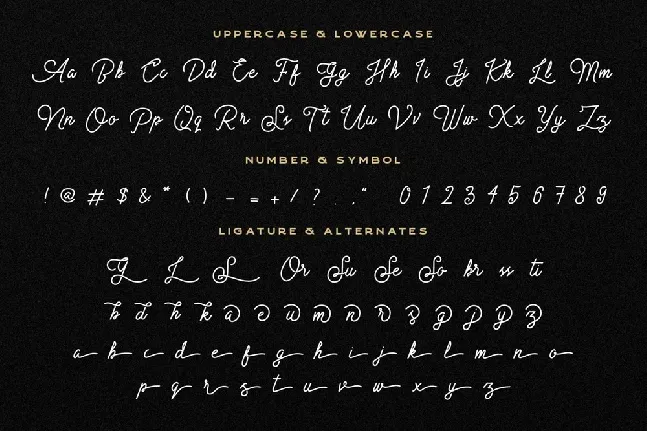 UPPERCASE & LOWERCASE
Aa Bb Cc Dd Ee Ff Gg Hh Ii Jj Kk Ll Mm
Nn Oo Pp Qq Rr Ss Tt Uu Vv Ww Xx Yy Zz
NUMBER & SYMBOL
! @ # $ & * ( ) - = + / ? . , " 0 1 2 3 4 5 6 7 8 9
LIGATURE & ALTERNATES
L S Or Su Se So kr ss ti
b d h k a e u m n r s g p y z
a b c d e f g h i j k l m n o
p q r s t u v w x y z